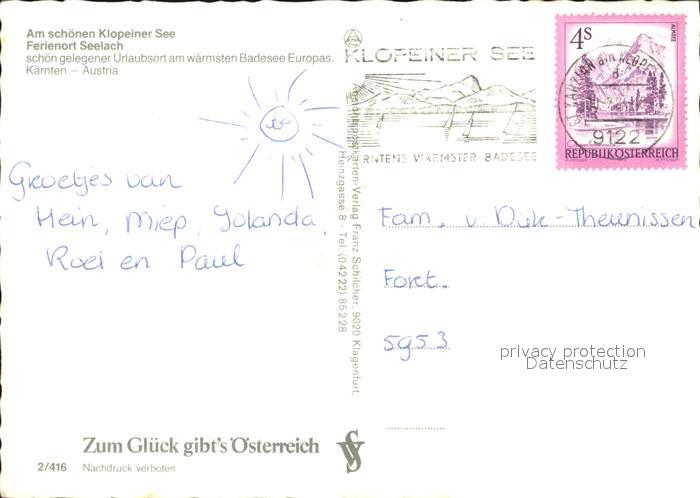 Am schönen Klopeiner See
Ferienort Seelach
schön gelegener Urlaubsort am wärmsten Badesee Europas.
Kärnten – Austria
KLOPEINER SEE
KÄRNTENS WÄRMSTER BADESEE
4S
ALMSEE
9122
REPUBLIK ÖSTERREICH
Groetjes van
Hein, Miep, Yolanda,
Roel en Paul
Ansichtspostkarten-Verlag Franz Schilcher, 9020 Klagenfurt,
Heinzgasse 8 · Tel. (0 42 22) 85 2 28
Fam. v. Dijk-Theunissen
Foret.
5953
privacy protection
Datenschutz
Zum Glück gibt's Österreich
2/416 Nachdruck verboten